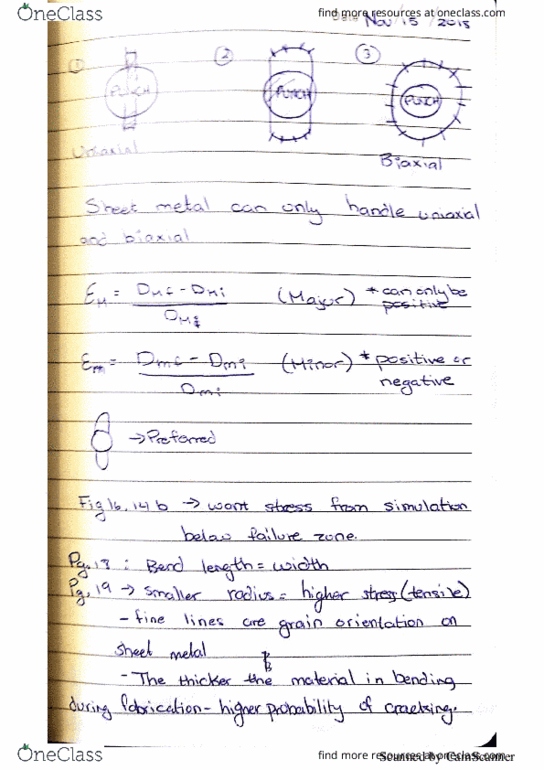 OneClass
find more resources at oneclass.com
Nov / 15 / 2018
① ② ③
PUNCH PUNCH PUNCH
Uniaxial
Biaxial
Sheet metal can only handle uniaxial
and biaxial
EM = DMf - DMi (Major) * can only be
positive
DMi
Em = Dmf - Dmi (Minor) * positive or
negative
Dmi
→ Preferred
Fig 16.14 b → want stress from simulation
below failure zone.
Pg. 13 : Bend length = width
Pg. 19 → smaller radius = higher stress (tensile)
- fine lines are grain orientation on
sheet metal
- The thicker the material in bending
during fabrication - higher probability of cracking.
OneClass
find more resources at oneclass.com
Scanned by CamScanner